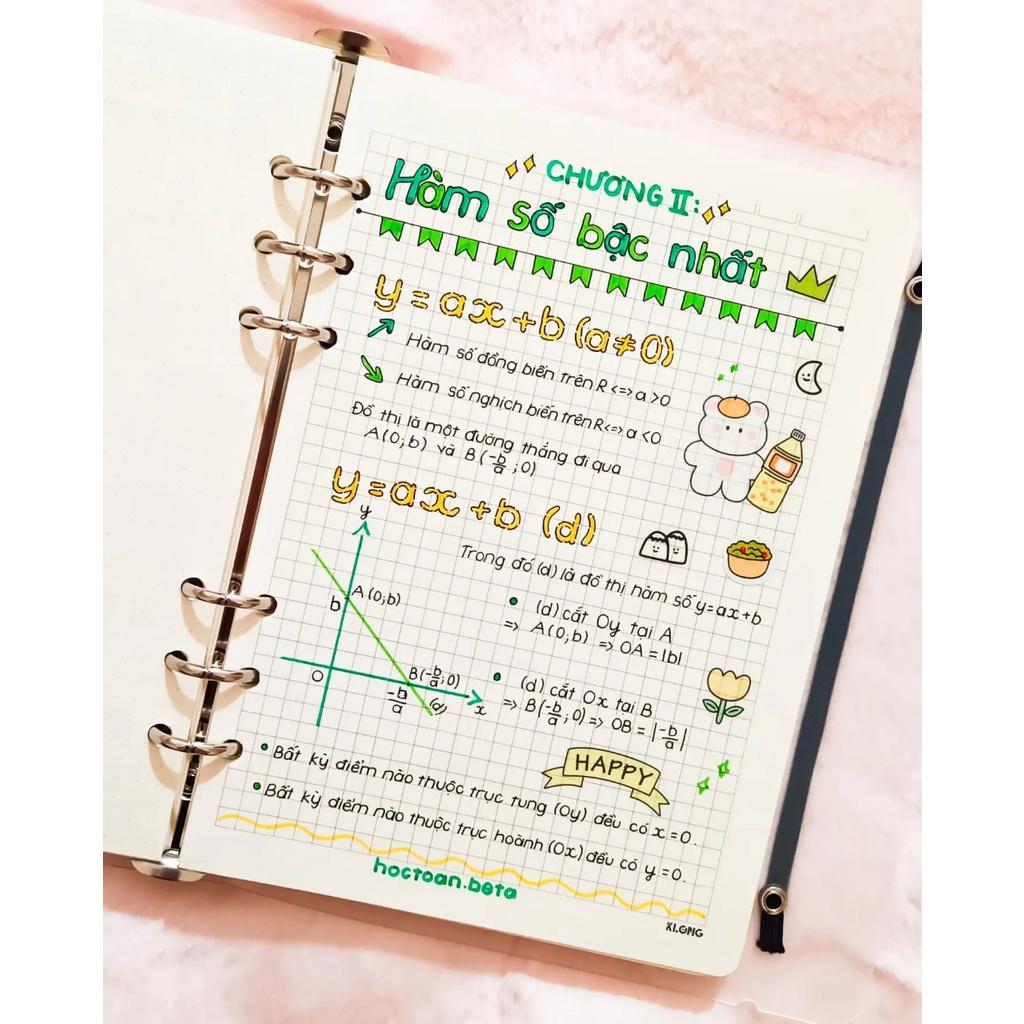 CHƯƠNG II:
Hàm số bậc nhất
y = ax + b (a ≠ 0)
Hàm số đồng biến trên R <=> a > 0
Hàm số nghịch biến trên R <=> a < 0
Đồ thị là một đường thẳng đi qua
A(0;b) và B(-b/a;0)
y = ax + b (d)
Trong đó (d) là đồ thị hàm số y = ax + b
y
A(0;b)
b
O
B(-b/a;0)
-b/a
(d)
x
• (d) cắt Oy tại A
=> A(0;b) => OA = |b|
• (d) cắt Ox tại B
=> B(-b/a;0) => OB = |-b/a|
HAPPY
• Bất kỳ điểm nào thuộc trục tung (Oy) đều có x = 0.
• Bất kỳ điểm nào thuộc trục hoành (Ox) đều có y = 0.
hoctoan.beta
KLONG